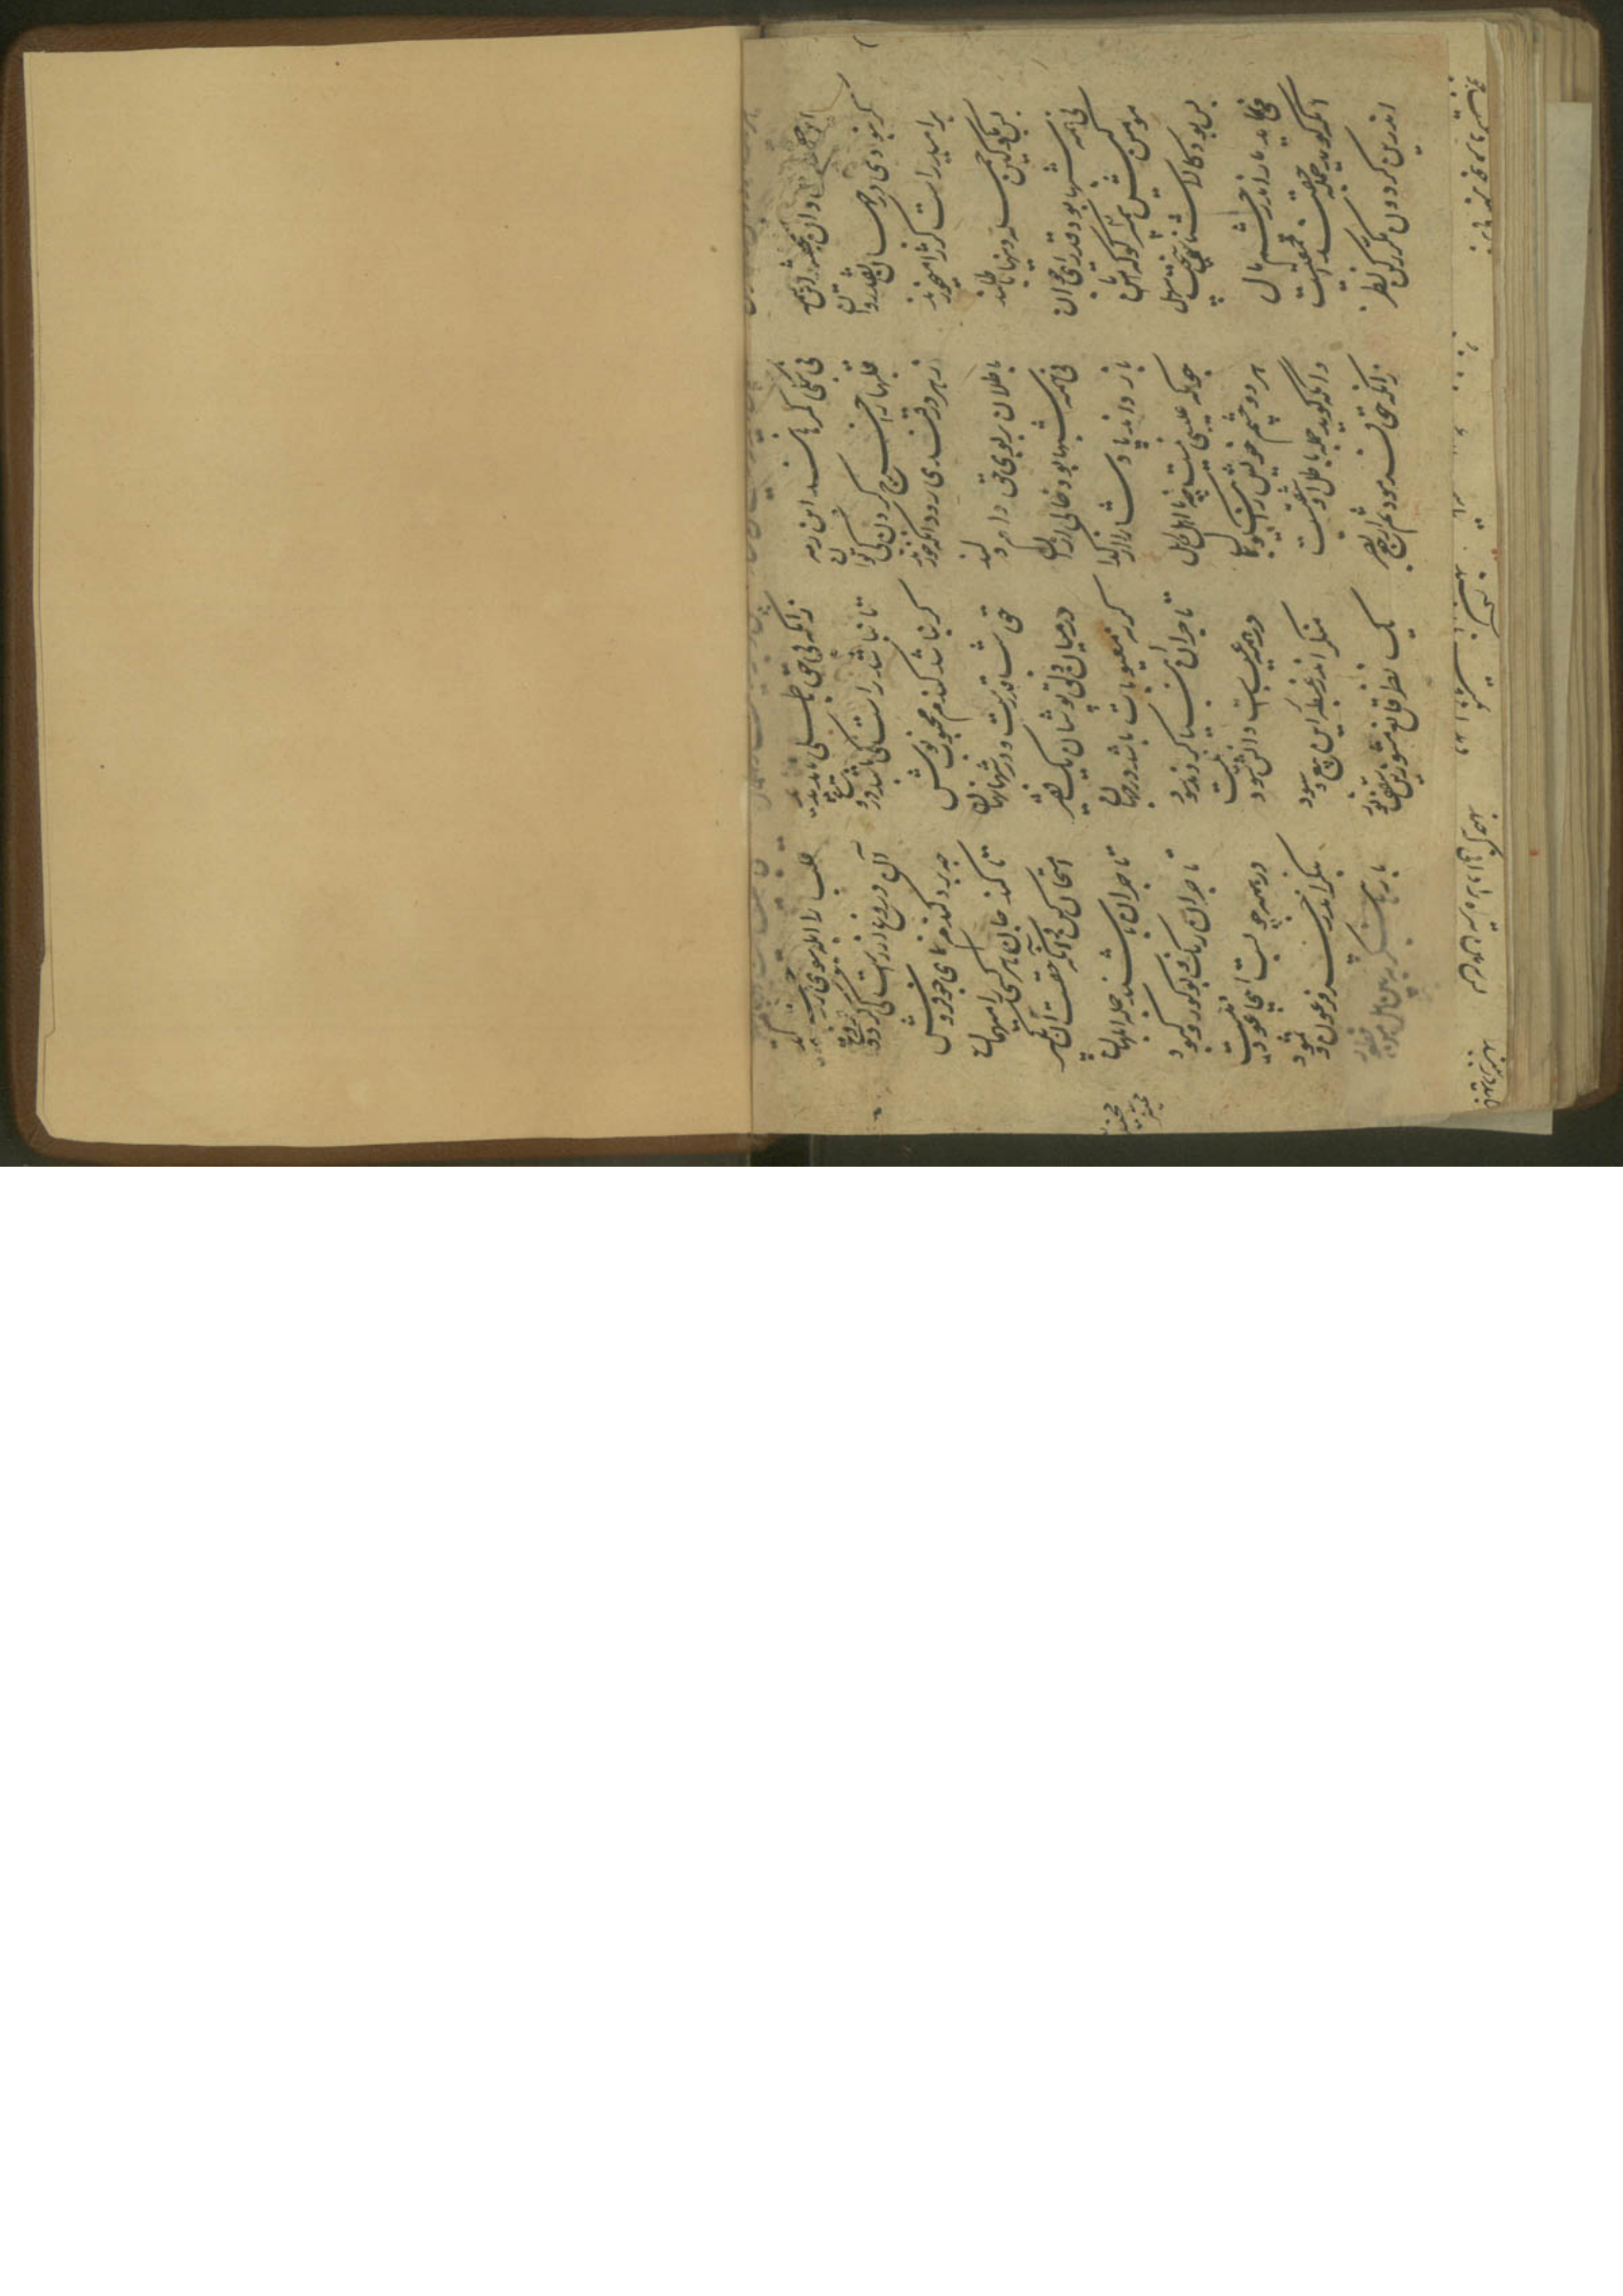 این حقیقت دان نه حقند این همه نی بکلی گمرهانند این رمه زانکه بی حق باطلی ناید پدید قلب را ابله ببوی زر خرید
گر نبودی در جهان نقد روان قلبها را خرج کردن کی توان تا نباشد راست کی باشد دروغ آن دروغ از راست می گیرد فروغ
بر امید راست کژ را میخورند زهر در قندی رود آنکه خورند گر نباشد گندم محبوب نوش چه برد گندم نمای جو فروش
پس مگو کین جمله دینها باطلند باطلان بر بوی حق دام دلند حق شب قدرست در شبها نهان تا کند جان هر شبی را امتحان
نی همه شبها بود قدر ای جوان نی همه شبها بود خالی از آن در میان دلق پوشان یک فقیر امتحان کن وانکه حقست آن بگیر
مومن کیس ممیز کو که تا باز داند پادشا را از گدا گرنه معیوبات باشد در جهان تاجران باشند جمله ابلهان
پس بود کالاشناسی سخت سهل چونکه عیبی نیست چه نااهل و اهل تاجران انبیا کردند سود تاجران رنگ و بو کور و کبود
می نماید مار اندر چشم مال هر دو چشم خویش را نیکو بمال ور همه عیبست دانش سود نیست ور همه چوبست اینجا عود نیست
آنکه گوید جمله حقند احمقیست وانکه گوید جمله باطل او شقیست منگر اندر غبطه این بیع و سود بنگر اندر خسر فرعون و ثمود
اندرین گردون مکرر کن نظر زانکه حق فرمود ثم ارجع بصر یک نظر قانع مشو زین سقف نور بارها بنگر ببین هل من فطور